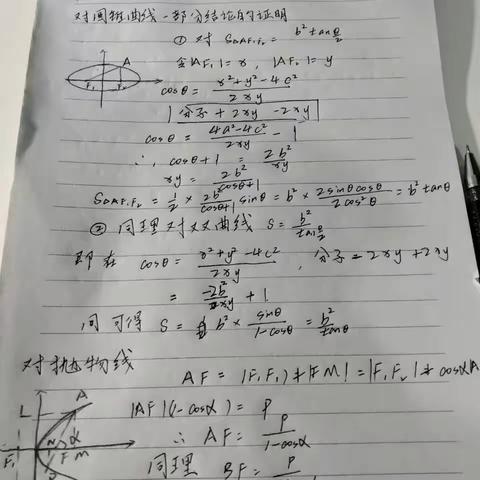 对圆锥曲线一部分结论的证明
① 对 S△AF₁F₂ = b² tan θ/2
令|AF₁| = x, |AF₂| = y
A
F₁ F₂
cosθ = (x²+y²-4c²)/(2xy)
|分子+2xy-2xy|
cosθ = (4a²-4c²)/(2xy) - 1
∴ cosθ+1 = 2b²/xy
xy = 2b²/(cosθ+1)
S△AF₁F₂ = 1/2 × 2b²/(cosθ+1) sinθ = b² × (2sinθcosθ)/(2cos²θ) = b² tanθ
② 同理对双曲线 S = b²/tan θ/2
即在 cosθ = (x²+y²-4c²)/(2xy), 分子=2xy+2xy
= -2b²/xy + 1
同可得 S = b² × sinθ/(1-cosθ) = b²/tanθ
对抛物线
AF = |F₁F₂|+|FM| = |F₁F₂|+cosα|A
L A
|AF|(1-cosα) = P
N α
F₁ F M
∴ AF = P/(1-cosα)
同理 BF = P